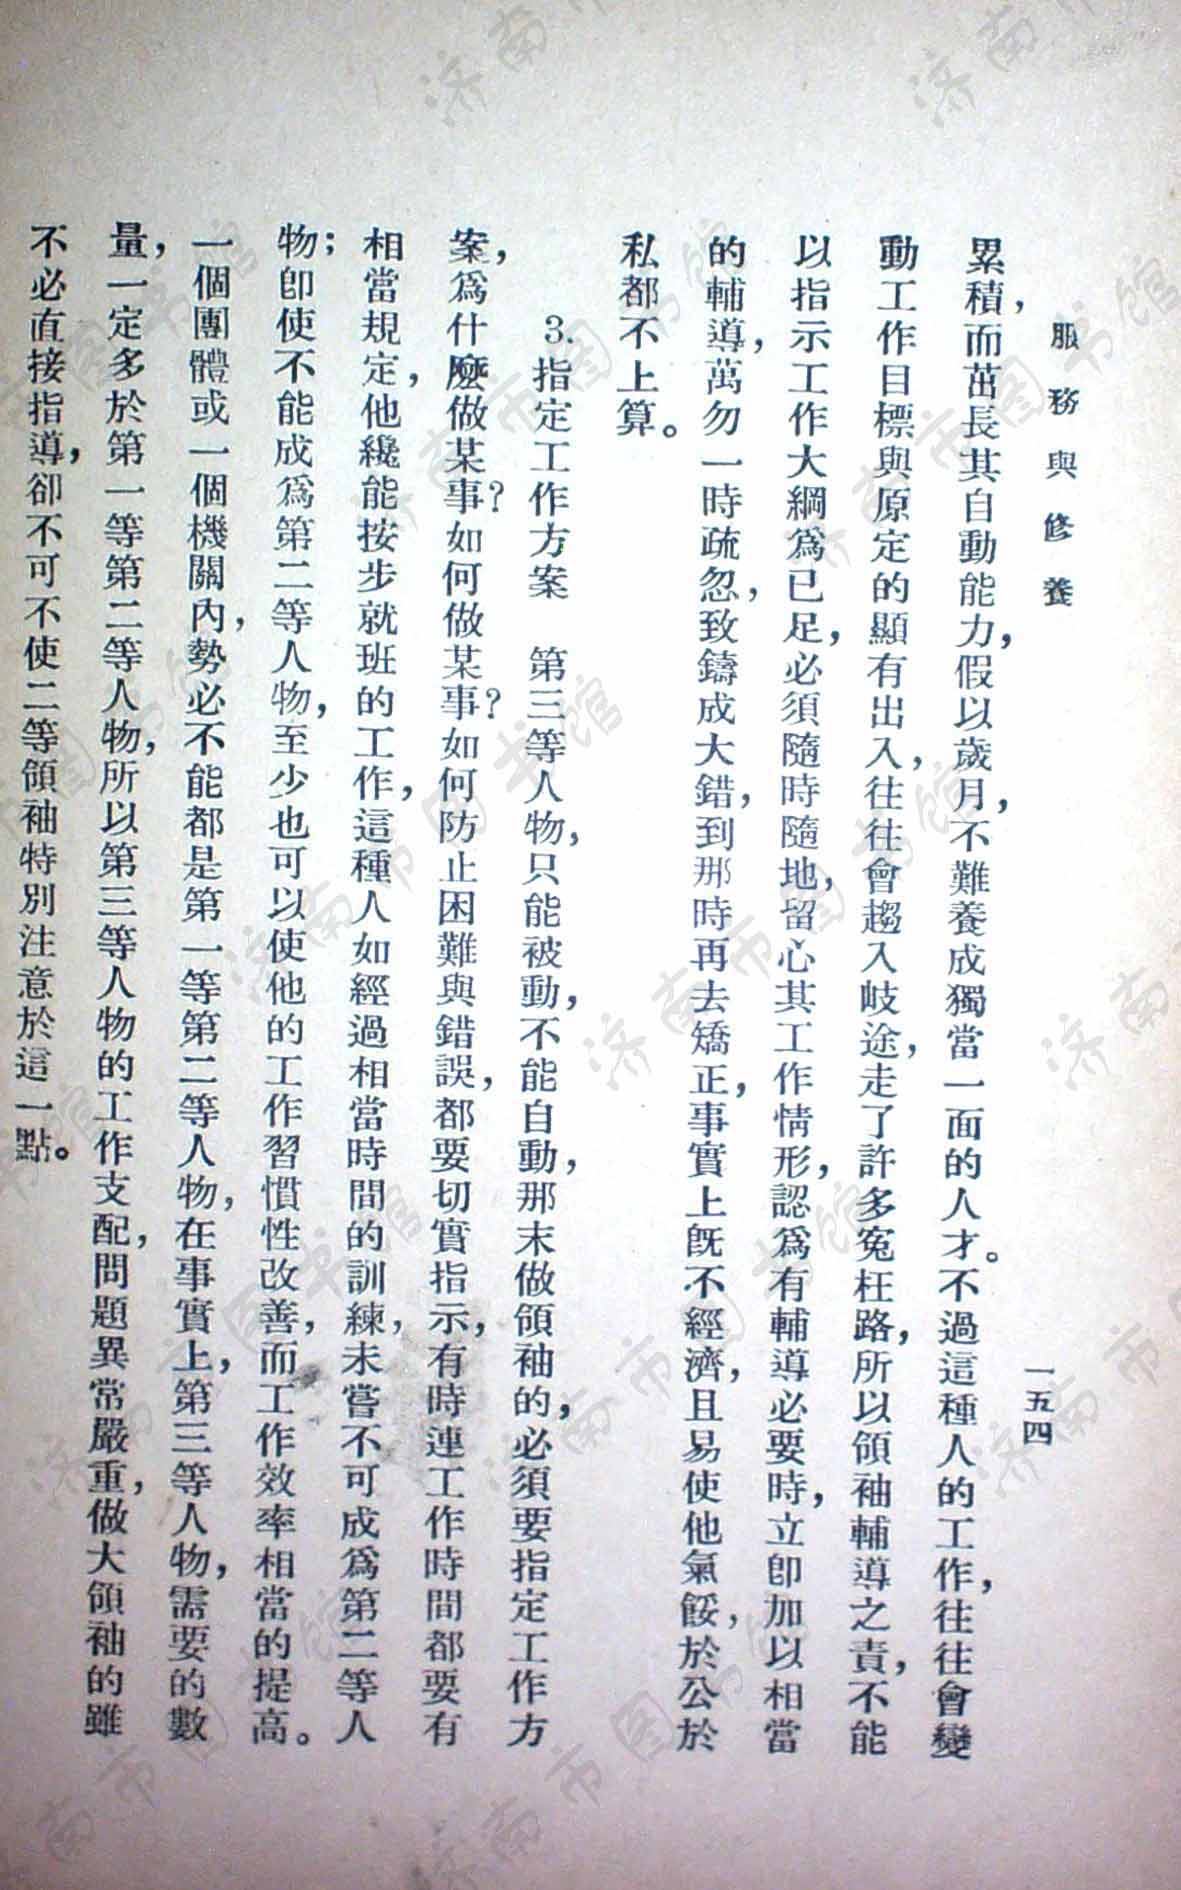 服務與修養
一五四
累積，而茁長其自動能力，假以歲月，不難養成獨當一面的人才。不過這種人的工作，往往會變
動工作目標，與原定的顯有出入，往往會趨入岐途，走了許多冤枉路，所以領袖輔導之責，不能
以指示工作大綱爲已足，必須隨時隨地，留心其工作情形，認爲有輔導必要時，立卽加以相當
的輔導，萬勿一時疏忽，致鑄成大錯，到那時再去矯正，事實上旣不經濟，且易使他氣餒，於公於
私都不上算。
3. 指定工作方案　第三等人物，只能被動，不能自動，那末做領袖的，必須要指定工作方
案，爲什麼做某事？如何做某事？如何防止困難與錯誤，都要切實指示，有時連工作時間都要有
相當規定，他纔能按步就班的工作，這種人如經過相當時間的訓練，未嘗不可成爲第二等人
物；卽使不能成爲第二等人物，至少也可以使他的工作習慣性改善，而工作效率相當的提高。
一個團體或一個機關內，勢必不能都是第一等第二等人物，在事實上，第三等人物，需要的數
量，一定多於第一等第二等人物，所以第三等人物的工作支配，問題異常嚴重，做大領袖的雖
不必直接指導，卻不可不使二等領袖特別注意於這一點。
济南市图书馆